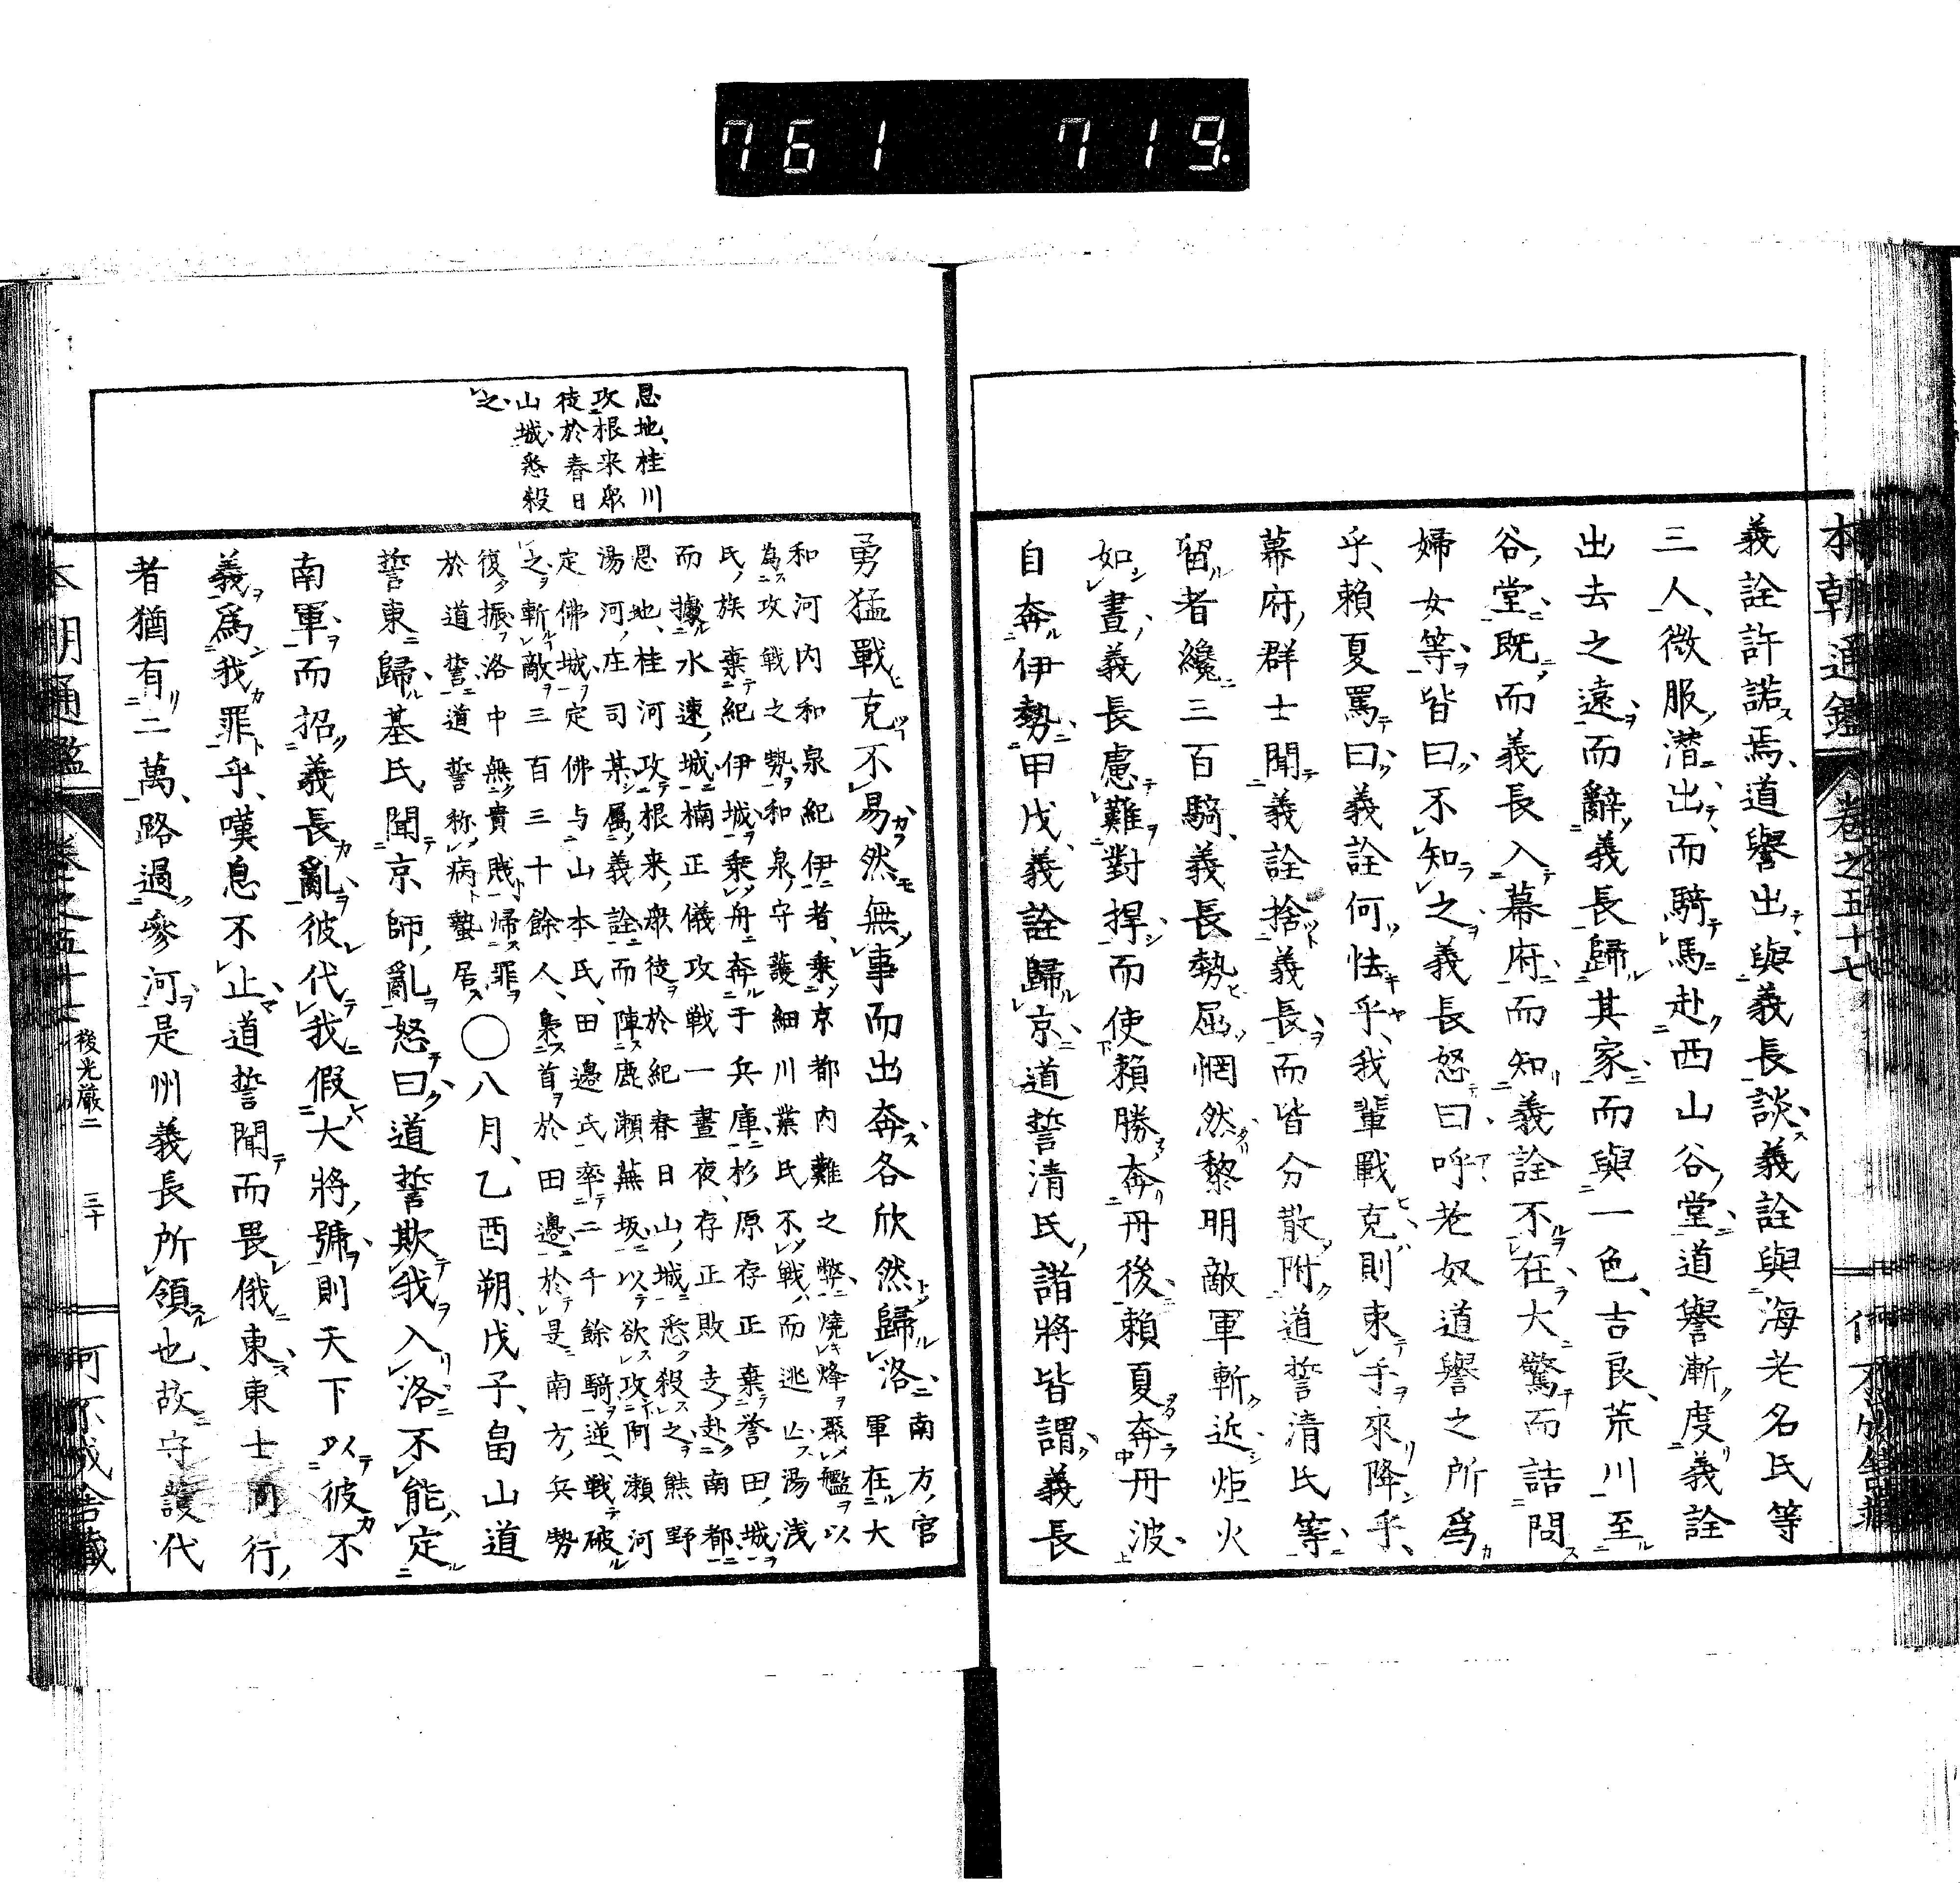 761 719.
本朝通鑑 卷之五十七
義詮許諾焉道譽出與義長談義詮與海老名氏等
三人微服潛出而騎馬赴西山谷堂道譽漸度義詮
出去之遠而辭義長歸其家而與一色吉良荒川至
谷堂既而義長入幕府而知義詮不在大驚而詰問
婦女等皆曰不知之義長怒曰呼老奴道譽之所爲
乎賴夏罵曰義詮何怯乎我輩戰克則束手來降乎
幕府群士聞義詮捨義長而皆分散附道誓清氏等
留者纔三百騎義長勢屈惘然黎明敵軍漸近炬火
如晝義長慮難對捍而使賴勝奔丹後賴夏奔丹波
自奔伊勢甲戌義詮歸京道誓清氏諸將皆謂義長
恩地桂川
攻根来衆
徒於春日
山城悉殺
之
勇猛戰克不易然無事而出奔各欣然歸洛南方官軍在大
和河内和泉紀伊者乗京都内難之弊燒烽聚艦以
為攻戦之勢和泉守護細川業氏不戦而逃亡湯浅
氏族棄紀伊城乗舟奔于兵庫杉原存正棄誉田城
而據水速城楠正儀攻戦一晝夜存正敗走赴南都
恩地桂河攻根来衆徒於紀春日山城悉殺之熊野
湯河庄司某属義詮而陣鹿瀬蕪坂以欲攻阿瀬河
定佛城定佛与山本氏田邉氏率二千餘騎逆戦破
之斬敵三百三十餘人梟首於田邉於是南方兵勢
復振洛中無貴賎帰罪
於道誓道誓称病蟄居○八月乙酉朔戊子畠山道
誓東歸基氏聞京師亂怒曰道誓欺我入洛不能定
南軍而招義長亂彼代我假大將號則天下以彼不
義爲我罪乎嘆息不止道誓聞而畏俄東東士同行
者猶有二萬路過參河是州義長所領也故守護代
本朝通鑑 卷之五十七 後光嚴二 三十